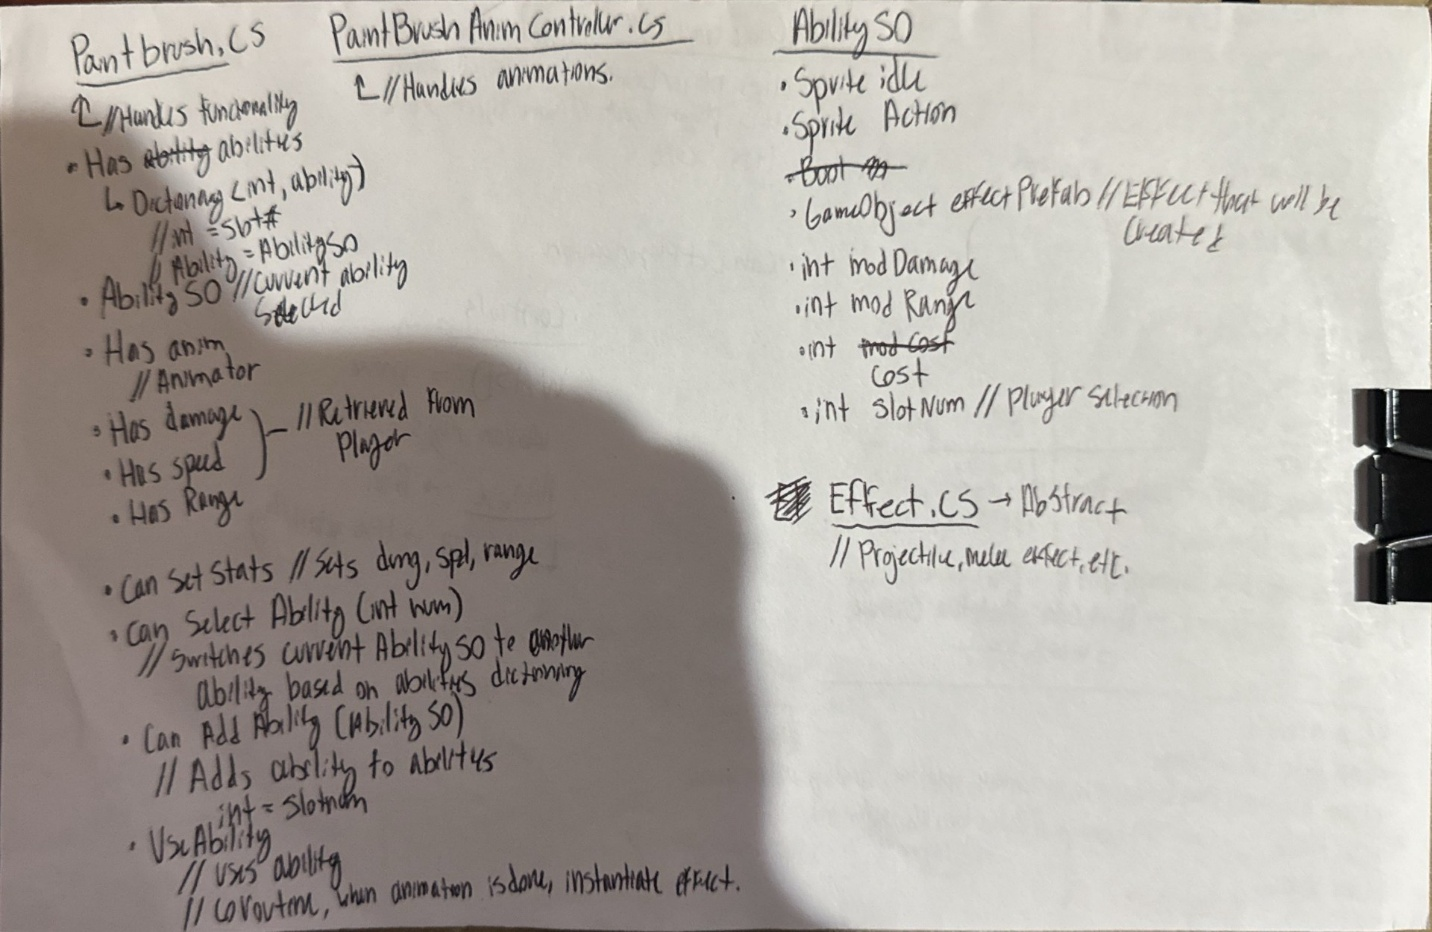 Paintbrush.CS
↳ //Handles functionality
• Has ability abilities
↳ Dictionary <int, ability>
//int = Slot#
// Ability = AbilitySO
• Ability SO //Current ability
Selected
• Has anim
// Animator
• Has damage
• Has speed
// Retrieved From
Player
• Has Range
• Can Set Stats // Sets dmg, spd, range
• Can Select Ability (int num)
// Switches current Ability SO to another
ability based on abilities dictionary
• Can Add Ability (Ability SO)
// Adds ability to abilities
int = Slotnum
• Use Ability
// uses ability
// Coroutine, when animation is done, instantiate effect.
PaintBrush Anim Controller.cs
↳ //Handles animations.
Ability SO
• Sprite idle
• Sprite Action
• Bool
• GameObject effectPrefab // Effect that will be
Created
• int modDamage
• int mod Range
• int mod Cost
Cost
• int SlotNum // Player Selection
Effect.CS → Abstract
// Projectile, melee effect, etc.